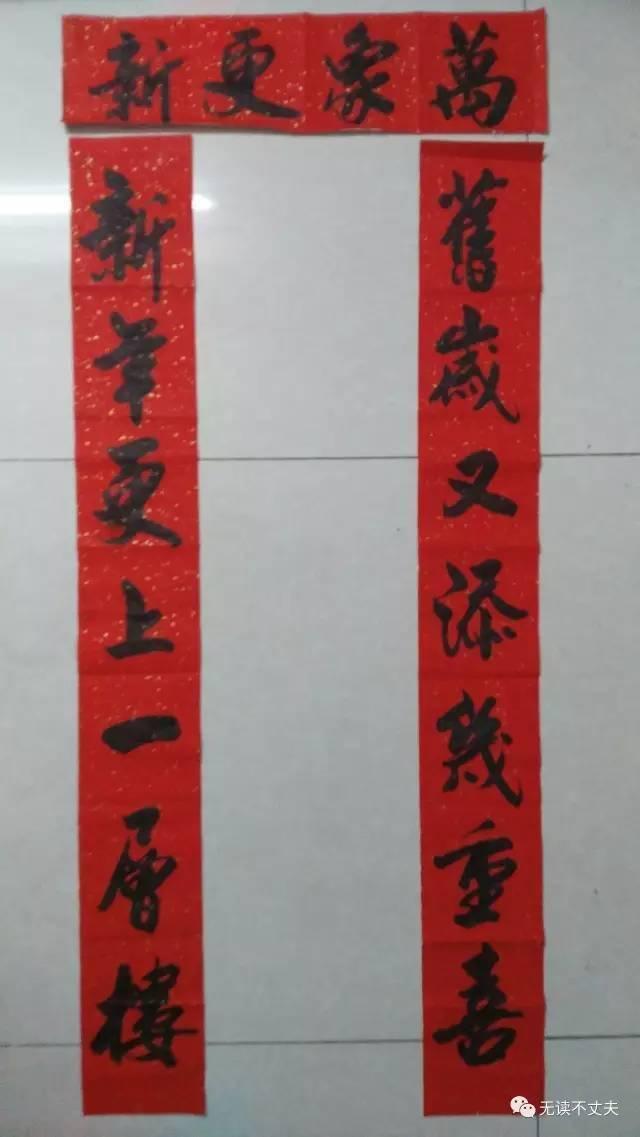 萬象更新
舊歲又添幾重喜
新年更上一層樓
无读不丈夫